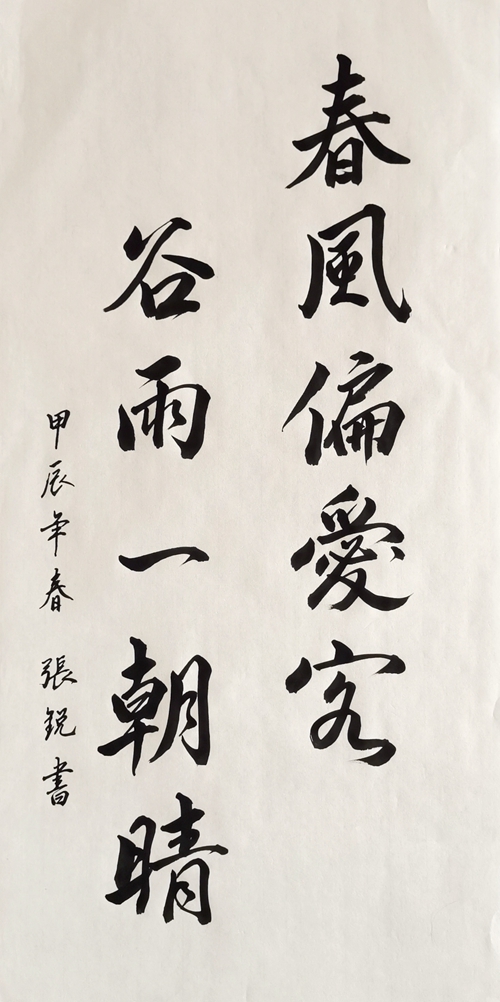 春風偏愛客
谷雨一朝晴
甲辰年春 張銳書